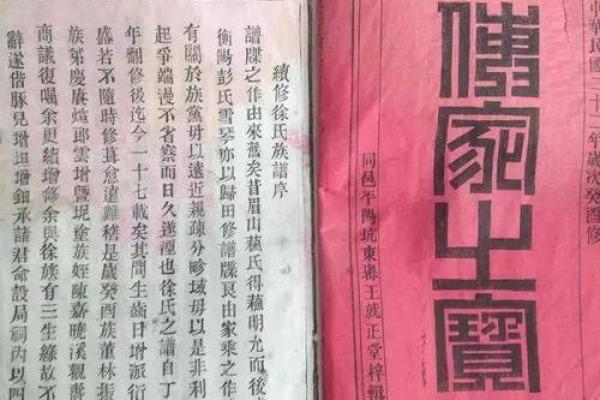 中華民國二十二年歲次癸酉修
傳家之寶
同邑平陽坑東嶴王就正堂梓輯
續修徐氏族譜序
譜牒之作由來舊矣昔眉山蘇氏得蘇明允而後
衡陽彭氏雪琴亦以歸田修譜牒良由家乘之作
有關於族黨毋以遠近親疎分畛域毋以是非利
起爭端漫不省察而日久遂湮也徐氏之譜自丁
年翻修後迄今一十七載矣其間生齒日增派衍
盛若不隨時修葺愈遠難稽是歲癸酉族董林振
族弟慶賡煊郎雲增暨坭塗族姪陳嘉曉溪觀壽
商議復囑余更續增修余與徐族有三生緣故不
辭遂偕豚兒增坦增鈿承諸君命設局祠內以四